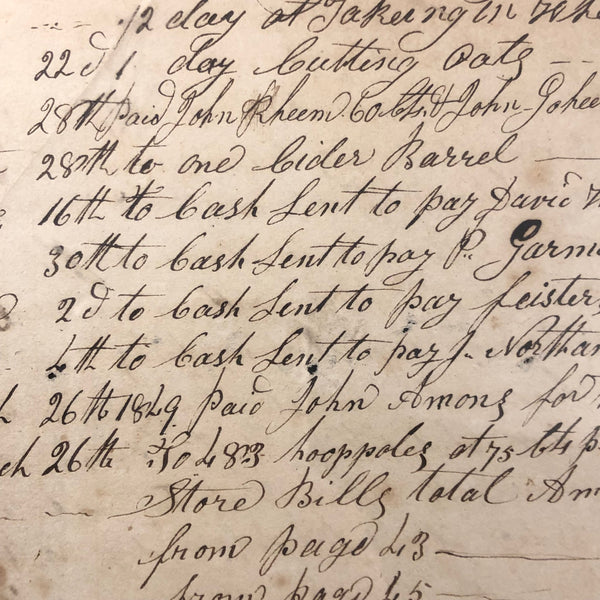 1/2 day at Takeing in Whe
22d 1 day Cutting Oats
28th Paid John Rheem 60 cts & John Johee
28th to one Cider Barrel
16th to Cash Sent to pay David
30th to Cash Sent to pay P. Garm
2d to Cash Sent to pay feister
4th to Cash Sent to pay J. Northam
26th 1849 Paid John Amons for
ch 26th To 483 hooppoles at 75 cts p
Store Bills total Am
from page 43
from page 45